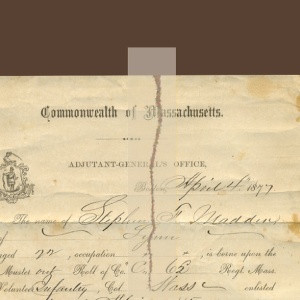 Commonwealth of Massachusetts.
ADJUTANT-GENERAL'S OFFICE,
Boston, April 4th 1877
The name of Stephen F. Madden
Lynn
aged 22, occupation is borne upon the
Muster out Roll of Co. Regt Mass.
Volunteer Infantry Col Mass enlisted